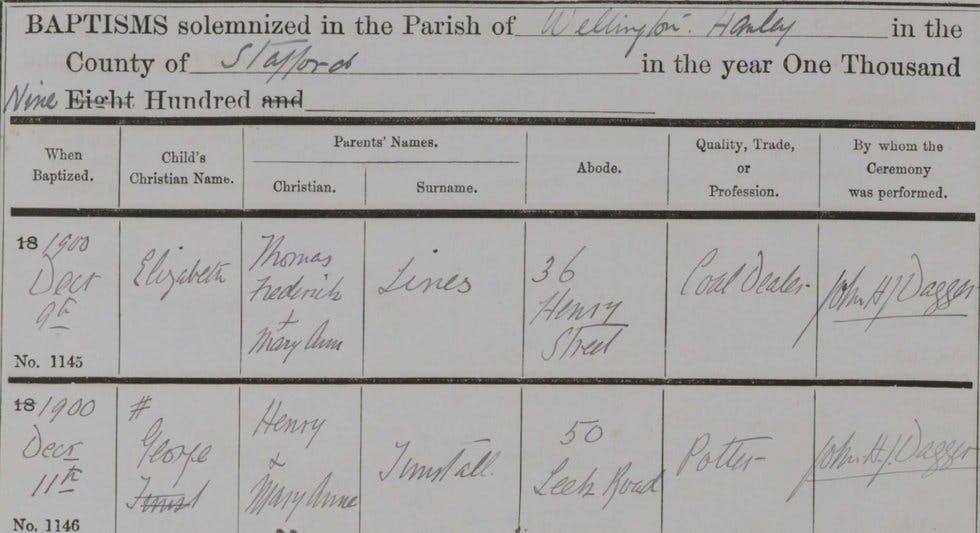 BAPTISMS solemnized in the Parish of Wellington. Hanley in the
County of Stafford in the year One Thousand
Nine Eight Hundred and
When Baptized.
Child's Christian Name.
Parents' Names.
Christian.
Surname.
Abode.
Quality, Trade, or Profession.
By whom the Ceremony was performed.
18 1900
Decr
9th
No. 1145
Elizabeth
Thomas
Frederick
+
Mary Ann
Lines
36
Henry
Street
Coal Dealer
John H J Dagger
18 1900
Decr
11th
No. 1146
#
George
Henry
+
Mary Anne
Tunstall.
50
Leek Road
Potter
John H. J. Dagger